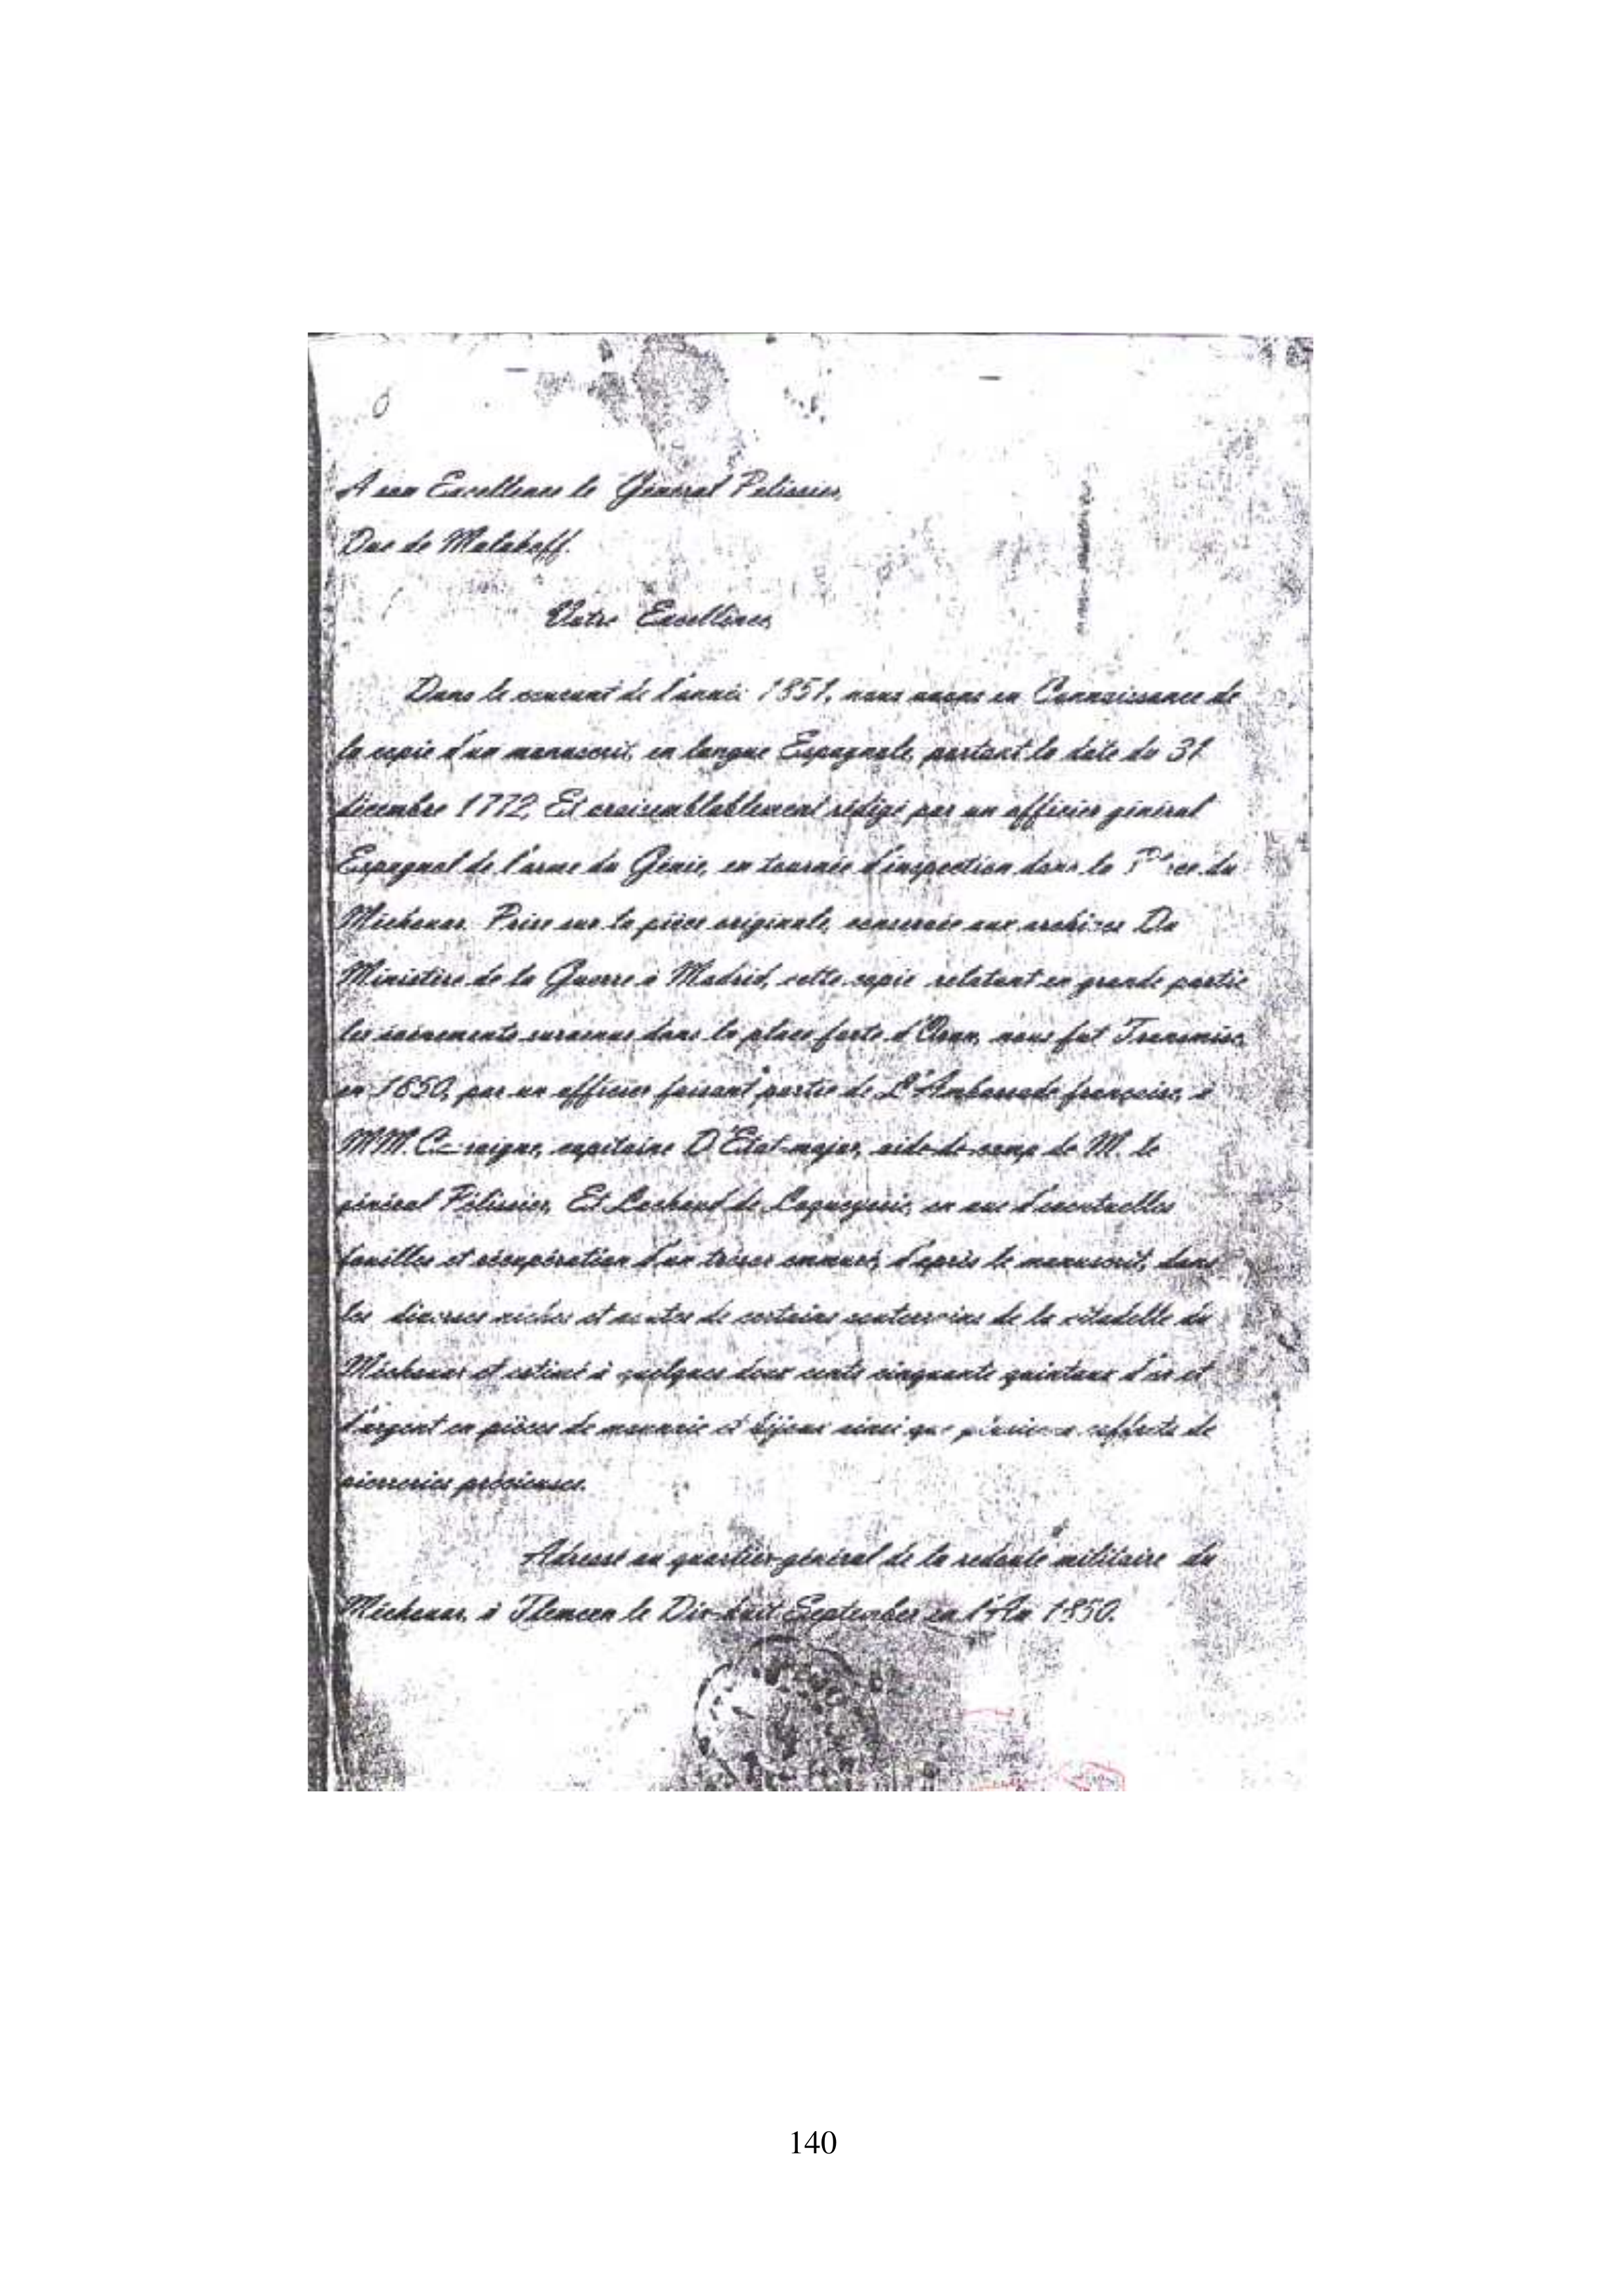 A son Excellence le Général Pelissier,
Duc de Malakoff.
Votre Excellence,
Dans le courant de l'année 1851, nous avons eu Connaissance de
la copie d'un manuscrit, en langue Espagnole, portant la date du 31
décembre 1772, Et vraisemblablement rédigé par un officier général
Espagnol de l'arme du Génie, en tournée d'inspection dans la Place du
Méchouar. Prise sur la pièce originale, conservée aux archives Du
Ministère de la Guerre à Madrid, cette copie relatant en grande partie
les évènements survenus dans la place forte d'Oran, nous fut Transmise,
en 1850, par un officier faisant partie de L'Ambassade française, à
MM. capitaine D'Etat-major, aide-de-camp de M. le
général Pélissier, Et de en vue d'éventuelles
fouilles et récupération d'un trésor emmuré, d'après le manuscrit, dans
les diverses niches et de certains souterrains de la citadelle du
Méchouar et estimé à quelques deux cents cinquante quintaux d'or et
d'argent en pièces de monnaie et bijoux ainsi que plusieurs coffrets de
pierreries précieuses.
Adressé au quartier-général de la redoute militaire du
Méchouar, à Tlemcen le Dix-huit September en l'An 1850.
140